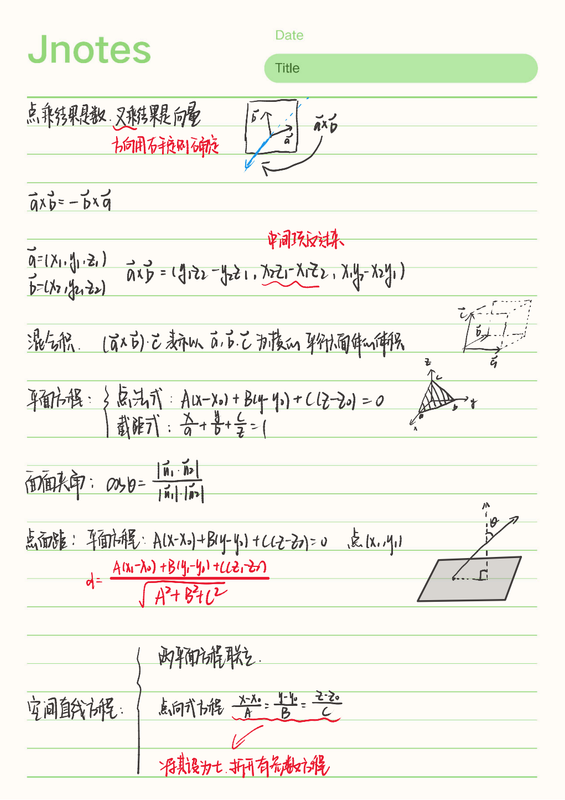 Jnotes
Date
Title
点乘结果是数.叉乘结果是向量
方向用右手定则确定
b⃗ a⃗ a⃗×b⃗
a⃗×b⃗=-b⃗×a⃗
中间项反过来
a⃗=(x₁,y₁,z₁)
b⃗=(x₂,y₂,z₂) a⃗×b⃗=(y₁z₂-y₂z₁, x₂z₁-x₁z₂, x₁y₂-x₂y₁)
混合积. (a⃗×b⃗)·c⃗ 表示以 a⃗,b⃗,c⃗ 为棱的平行六面体的体积
c⃗ b⃗ a⃗
平面方程: { 点法式: A(x-x₀)+B(y-y₀)+C(z-z₀)=0
截距式: x/a+y/b+c/z=1
z c b y a x
面面夹角: cosθ=|n⃗₁·n⃗₂|/|n⃗₁|·|n⃗₂|
点面距: 平面方程: A(x-x₀)+B(y-y₀)+C(z-z₀)=0 点(x₁,y₁)
d=A(x₁-x₀)+B(y₁-y₀)+C(z₁-z₀)/√A²+B²+C²
θ
两平面方程联立.
空间直线方程: { 点向式方程 x-x₀/A=y-y₀/B=z-z₀/C
将其设为t.拆开有参数方程